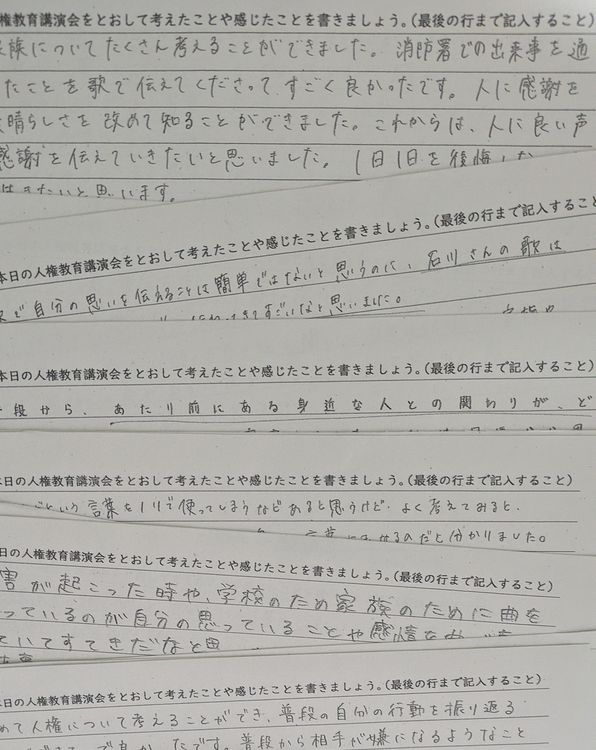 権教育講演会をとおして考えたことや感じたことを書きましょう。(最後の行まで記入すること)
族についてたくさん考えることができました。消防署での出来事を通
たことを歌で伝えてくださって、すごく良かったです。人に感謝を
晴らしさを改めて知ることができました。これからは、人に良い声
感謝を伝えていきたいと思いました。1日1日を後悔
たいと思います。
本日の人権教育講演会をとおして考えたことや感じたことを書きましょう。(最後の行まで記入すること
で自分の思いを伝えることは簡単ではないと思うのに、石川さんの歌は
すごいなと思いました。
本日の人権教育講演会をとおして考えたことや感じたことを書きましょう。(最後の行まで記入すること)
段から、あたり前にある身近な人との関わりが、ど
日の人権教育講演会をとおして考えたことや感じたことを書きましょう。(最後の行まで記入すること)
という言葉を1リで使ってしまうなどあると思うけど、よく考えてみると、
のだと分かりました。
日の人権教育講演会をとおして考えたことや感じたことを書きましょう。(最後の行まで記入すること)
害が起こった時や、学校のため家族のために曲を
っているのが自分の思っていることや感情を
ていてすてきだなと思
本日の人権教育講演会をとおして考えたことや感じたことを書きましょう。(最後の行まで記入すること)
めて人権について考えることができ、普段の自分の行動を振り返る
です。普段から相手が嫌になるようなこと